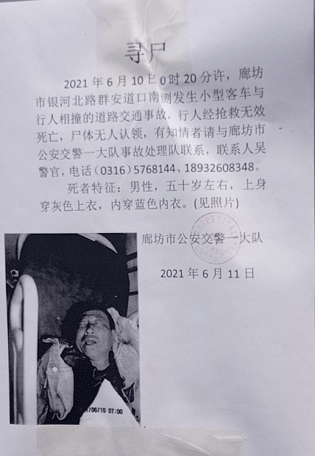 寻尸
2021年6月10日0时20分许，廊坊
市银河北路群安道口南侧发生小型客车与
行人相撞的道路交通事故，行人经抢救无效
死亡，尸体无人认领，有知情者请与廊坊市
公安交警一大队事故处理队联系，联系人吴
警官，电话(0316)5768144、18932608348。
死者特征：男性，五十岁左右，上身
穿灰色上衣，内穿蓝色内衣。(见照片)
廊坊市公安交警一大队
2021年6月11日
/06/10 07:00